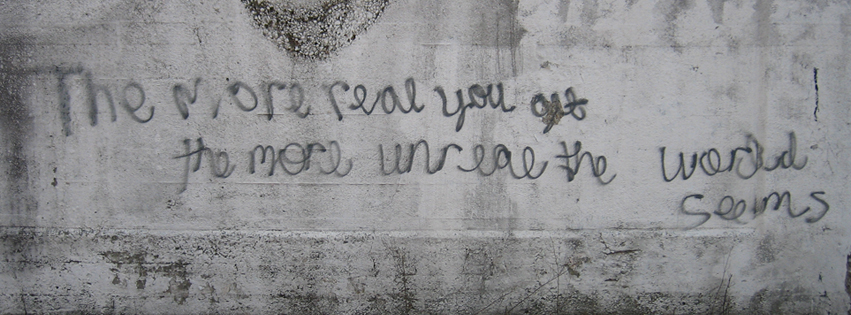 The more real you get
the more unreal the world
seems